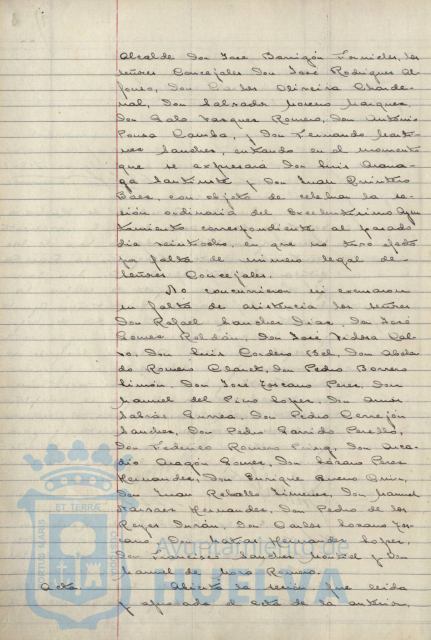 Alcalde Don José Barrigón Fornieles, los
señores Concejales Don José Rodríguez Al-
fonso, Don Carlos Oliveira Chardenal,
Don Salvador Moreno Márquez,
Don Galo Vázquez Romero, Don Antonio
Pousa Camba, y Don Fernando
Sánchez, entrando en el momento
que se expresará Don Luis
y Don Juan Quintero
Báez, con objeto de celebrar la se-
sión ordinaria del Excelentísimo Ayun-
tamiento correspondiente al pasado
día veintidos, en que no tuvo efecto
por falta de número legal de
Señores Concejales.
No concurrieron ni excusaron
su falta de asistencia los señores
Don Rafael Sánchez Díaz, Don José
Gómez Roldán, Don José Tidera Cal-
vo, Don Luis Cordero Bel, Don Abelar-
do Romero Claret, Don Pedro Borrero
Limón, Don José Toscano Pérez, Don
Manuel del Pino López, Don Amós
Sabrás Gurrea, Don Pedro Cerrejón
Sánchez, Don Pedro Garrido Perelló,
Don Federico Romero Puig, Don Arca-
dio Aragón Gómez, Don Pérez
Hernández, Don Enrique Bueno
Don Juan Rebollo Jiménez, Don Manuel
Narváez Hernández, Don Pedro de los
Reyes Durán, Don Carlos Lozano
Don Hernández López,
Don Sánchez y Don
Manuel de Mora Romero.
Acta. Abierta la sesión fue leída
y aprobada el acta de la anterior,
PORTUS MARIS ET TERRAE CUSTODIA
Ayuntamiento de
HUELVA